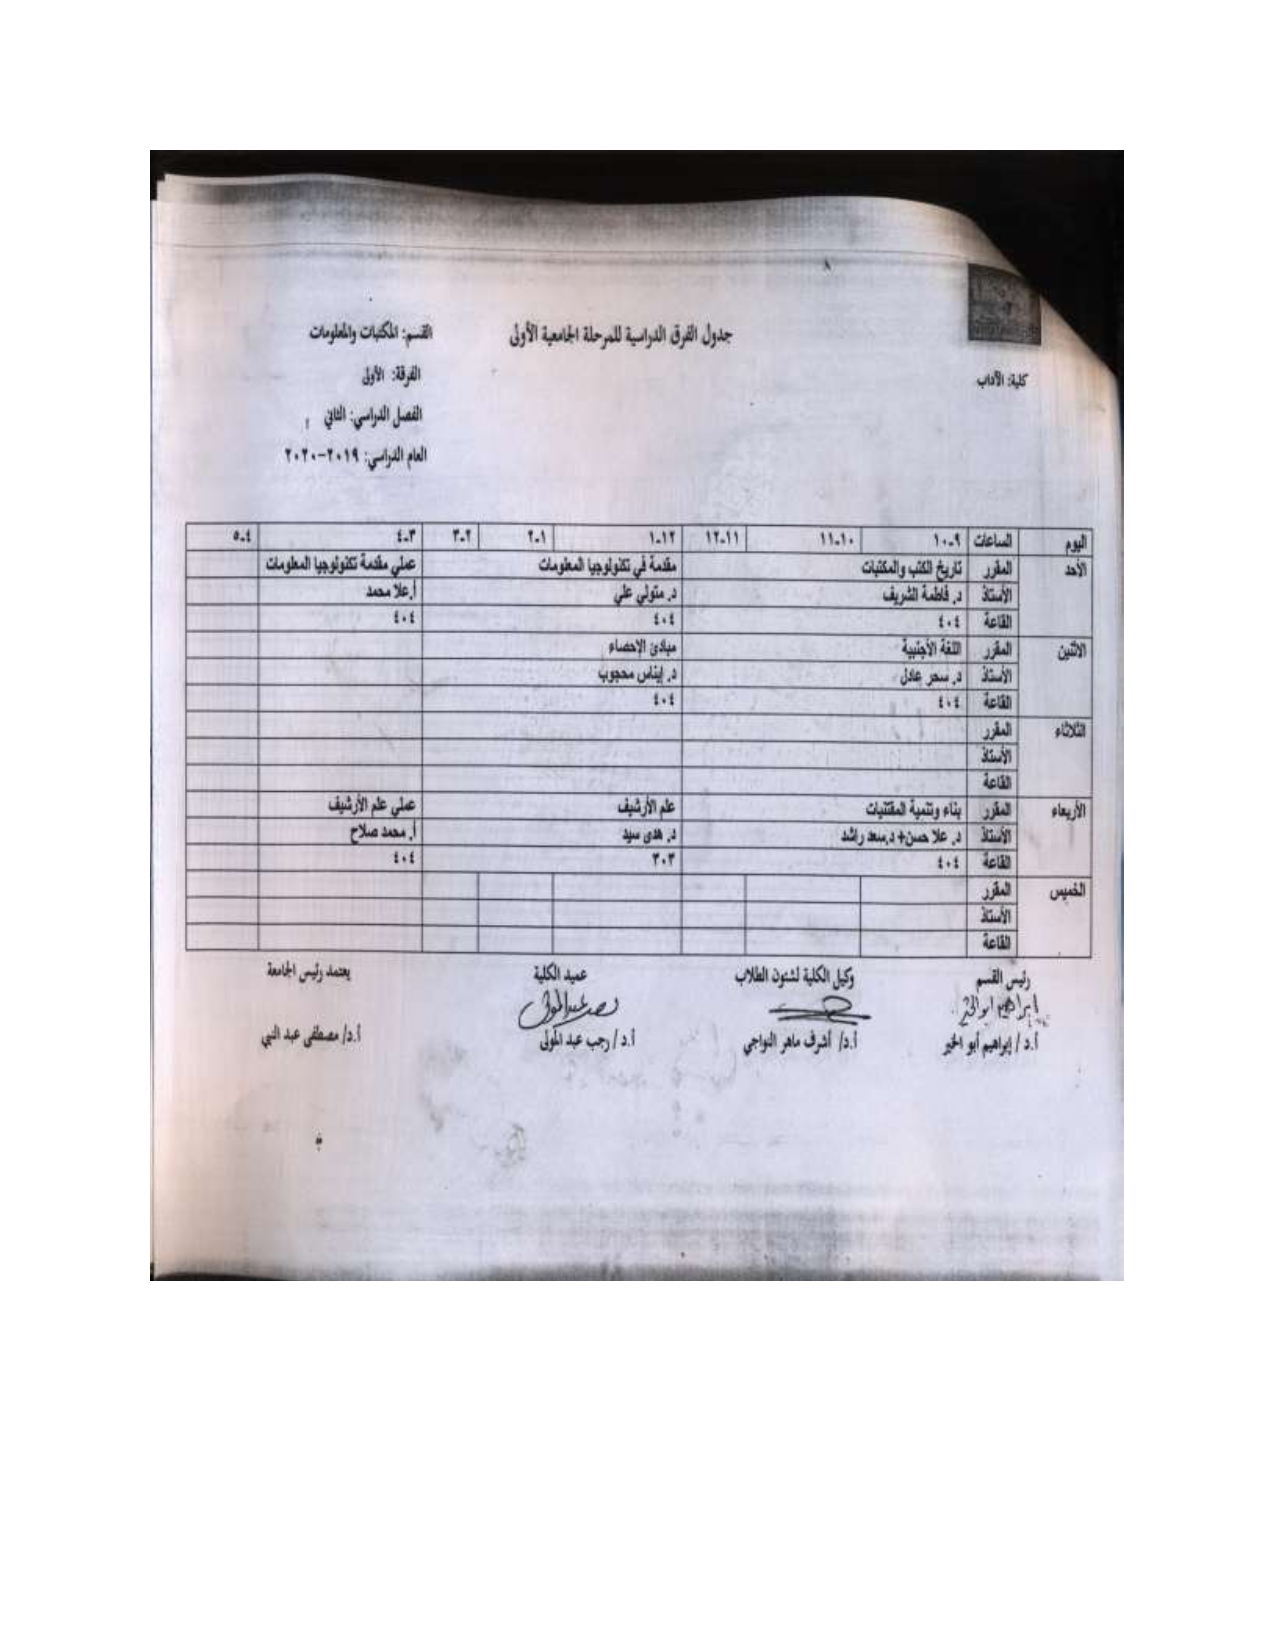 جدول الفرق الدراسية للمرحلة الجامعية الأولى
كلية: الآداب
القسم: المكتبات والمعلومات
الفرقة: الأولى
الفصل الدراسي: الثاني
العام الدراسي: ٢٠١٩-٢٠٢٠
اليوم الساعات ٩-١٠ ١٠-١١ ١١-١٢ ١٢-١ ١-٢ ٢-٣ ٣-٤ ٤-٥
الأحد المقرر تاريخ الكتب والمكتبات مقدمة في تكنولوجيا المعلومات عملي مقدمة تكنولوجيا المعلومات
الأستاذ د. فاطمة الشريف د. متولي علي أ.علا محمد
القاعة ٤٠٤ ٤٠٤ ٤٠٤
الاثنين المقرر اللغة الأجنبية مبادئ الإحصاء
الأستاذ د. سحر عادل د. إيناس محجوب
القاعة ٤٠٤ ٤٠٤
الثلاثاء المقرر
الأستاذ
القاعة
الأربعاء المقرر بناء وتنمية المقتنيات علم الأرشيف عملي علم الأرشيف
الأستاذ د. علا حسن+ د.سعد راشد د. هدى سيد أ. محمد صلاح
القاعة ٤٠٤ ٣٠٣ ٤٠٤
الخميس المقرر
الأستاذ
القاعة
رئيس القسم وكيل الكلية لشئون الطلاب عميد الكلية يعتمد رئيس الجامعة
أ.د / إبراهيم أبو الخير أ.د/ أشرف ماهر النواجي أ.د / رجب عبد المولى أ.د/ مصطفى عبد النبي